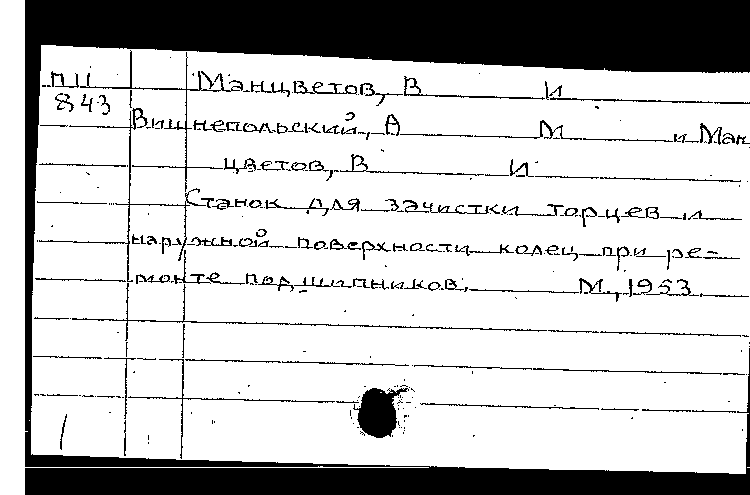 П11 Манцветов, В И
843
Вишнепольский, А М и Ман
цветов, В И
Станок для зачистки торцев и
наружной поверхности колец при ре-
монте подшипников. М., 1953.